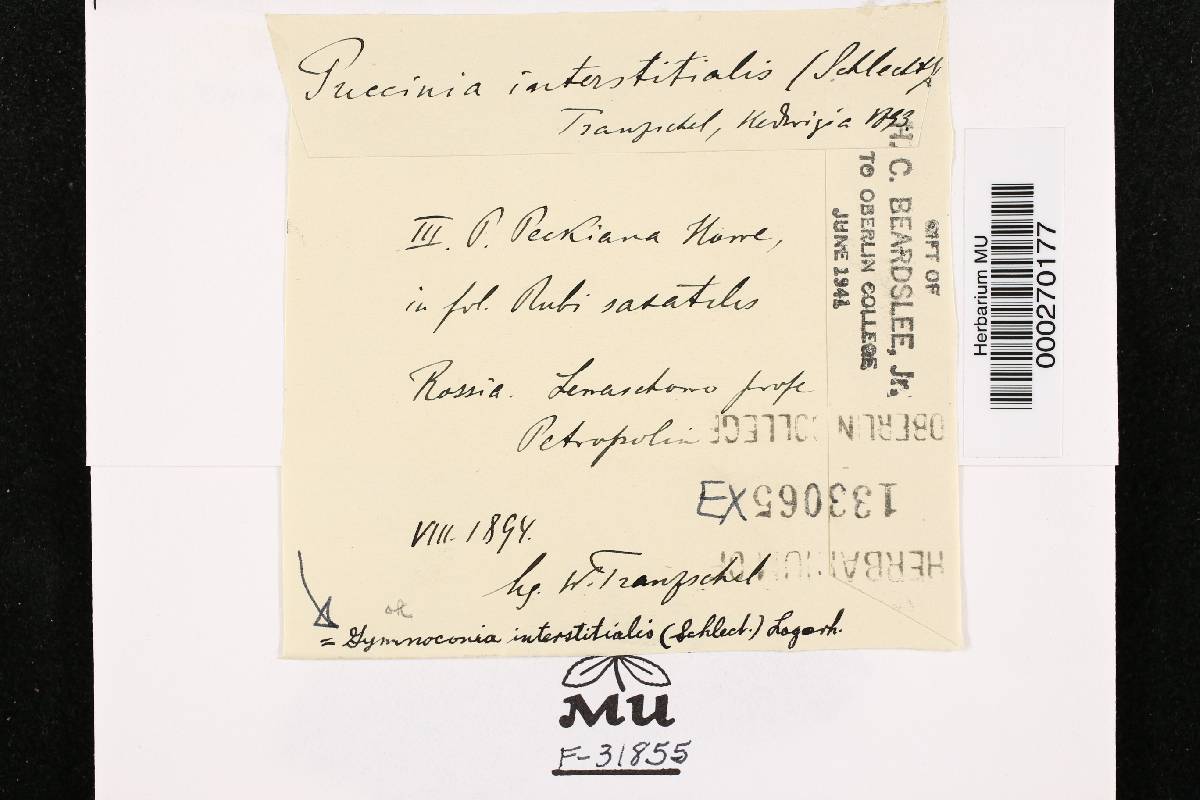 Puccinia interstitialis (Schlecht)
Tranzschel, Hedwigia 1893
III. P. Peckiana Howe,
in fol. Rubi saxatilis
Rossia. prope
Petropolin
VIII. 1894.
lg. W. Tranzschel
ok
= Gymnoconia interstitialis (Schlect.) Lagerh.
GIFT OF
H. C. BEARDSLEE, Jr.
TO OBERLIN COLLEGE
JUNE 1941
OBERLIN COLLEGE
EX 133065
HERBARIUM OF
Herbarium MU
000270177
MU
F-31855